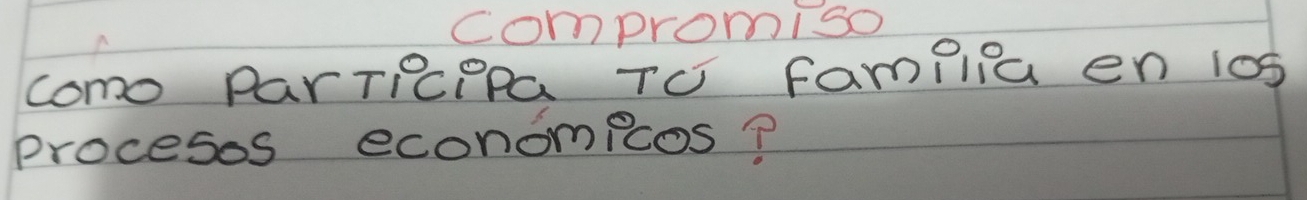 compromiso
como participa tú familia en los
procesos económicos?